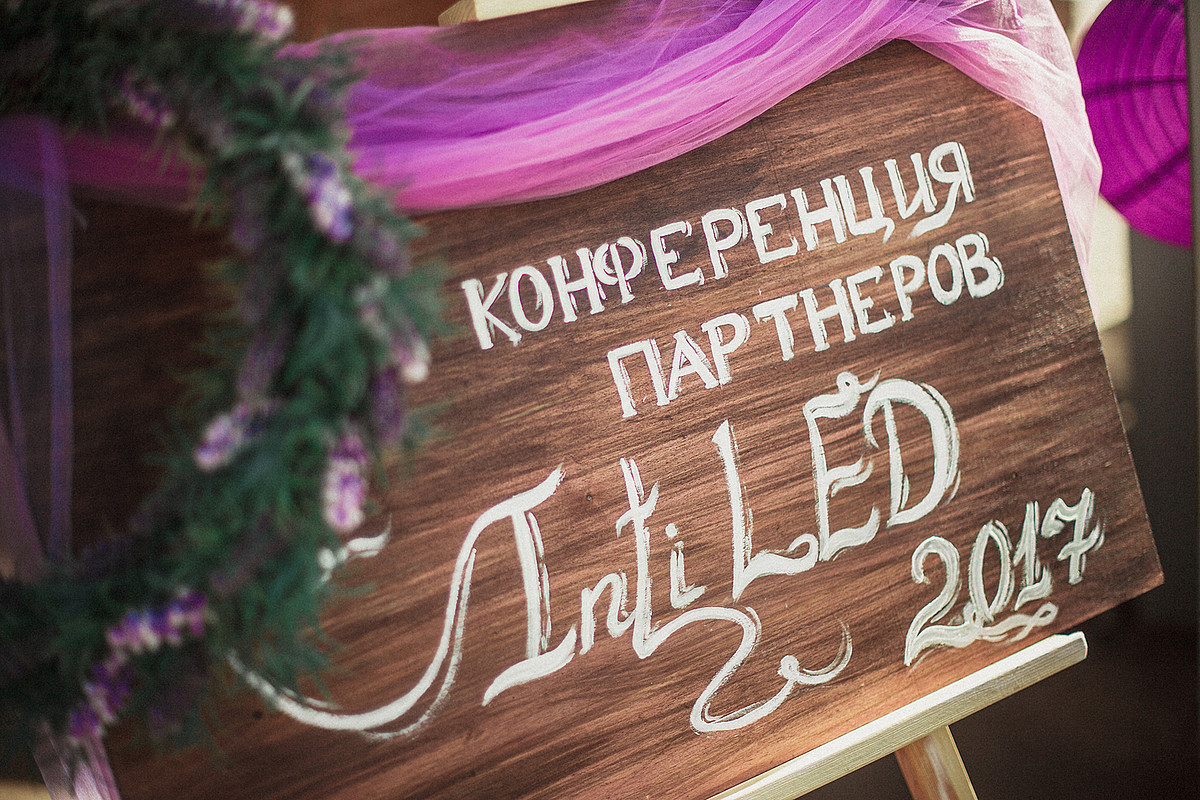 КОНФЕРЕНЦИЯ
ПАРТНЕРОВ
AntiLED
2017